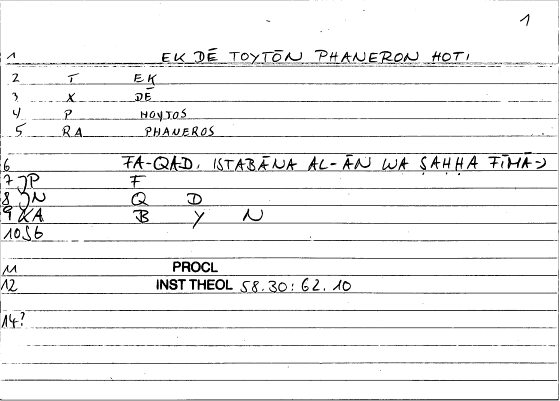 1
1 EK DĒ TOYTŌN PHANERON HOTI
2 T EK
3 X DĒ
4 P HOYTOS
5 RA PHANEROS
6 FA-QAD. ISTABĀNA AL-ĀN WA ṢAḤḤA FĪMĀ
7 P F
8 N Q D
9 XA B Y N
10 S6
11 PROCL
12 INST THEOL 58.30: 62.10
14?